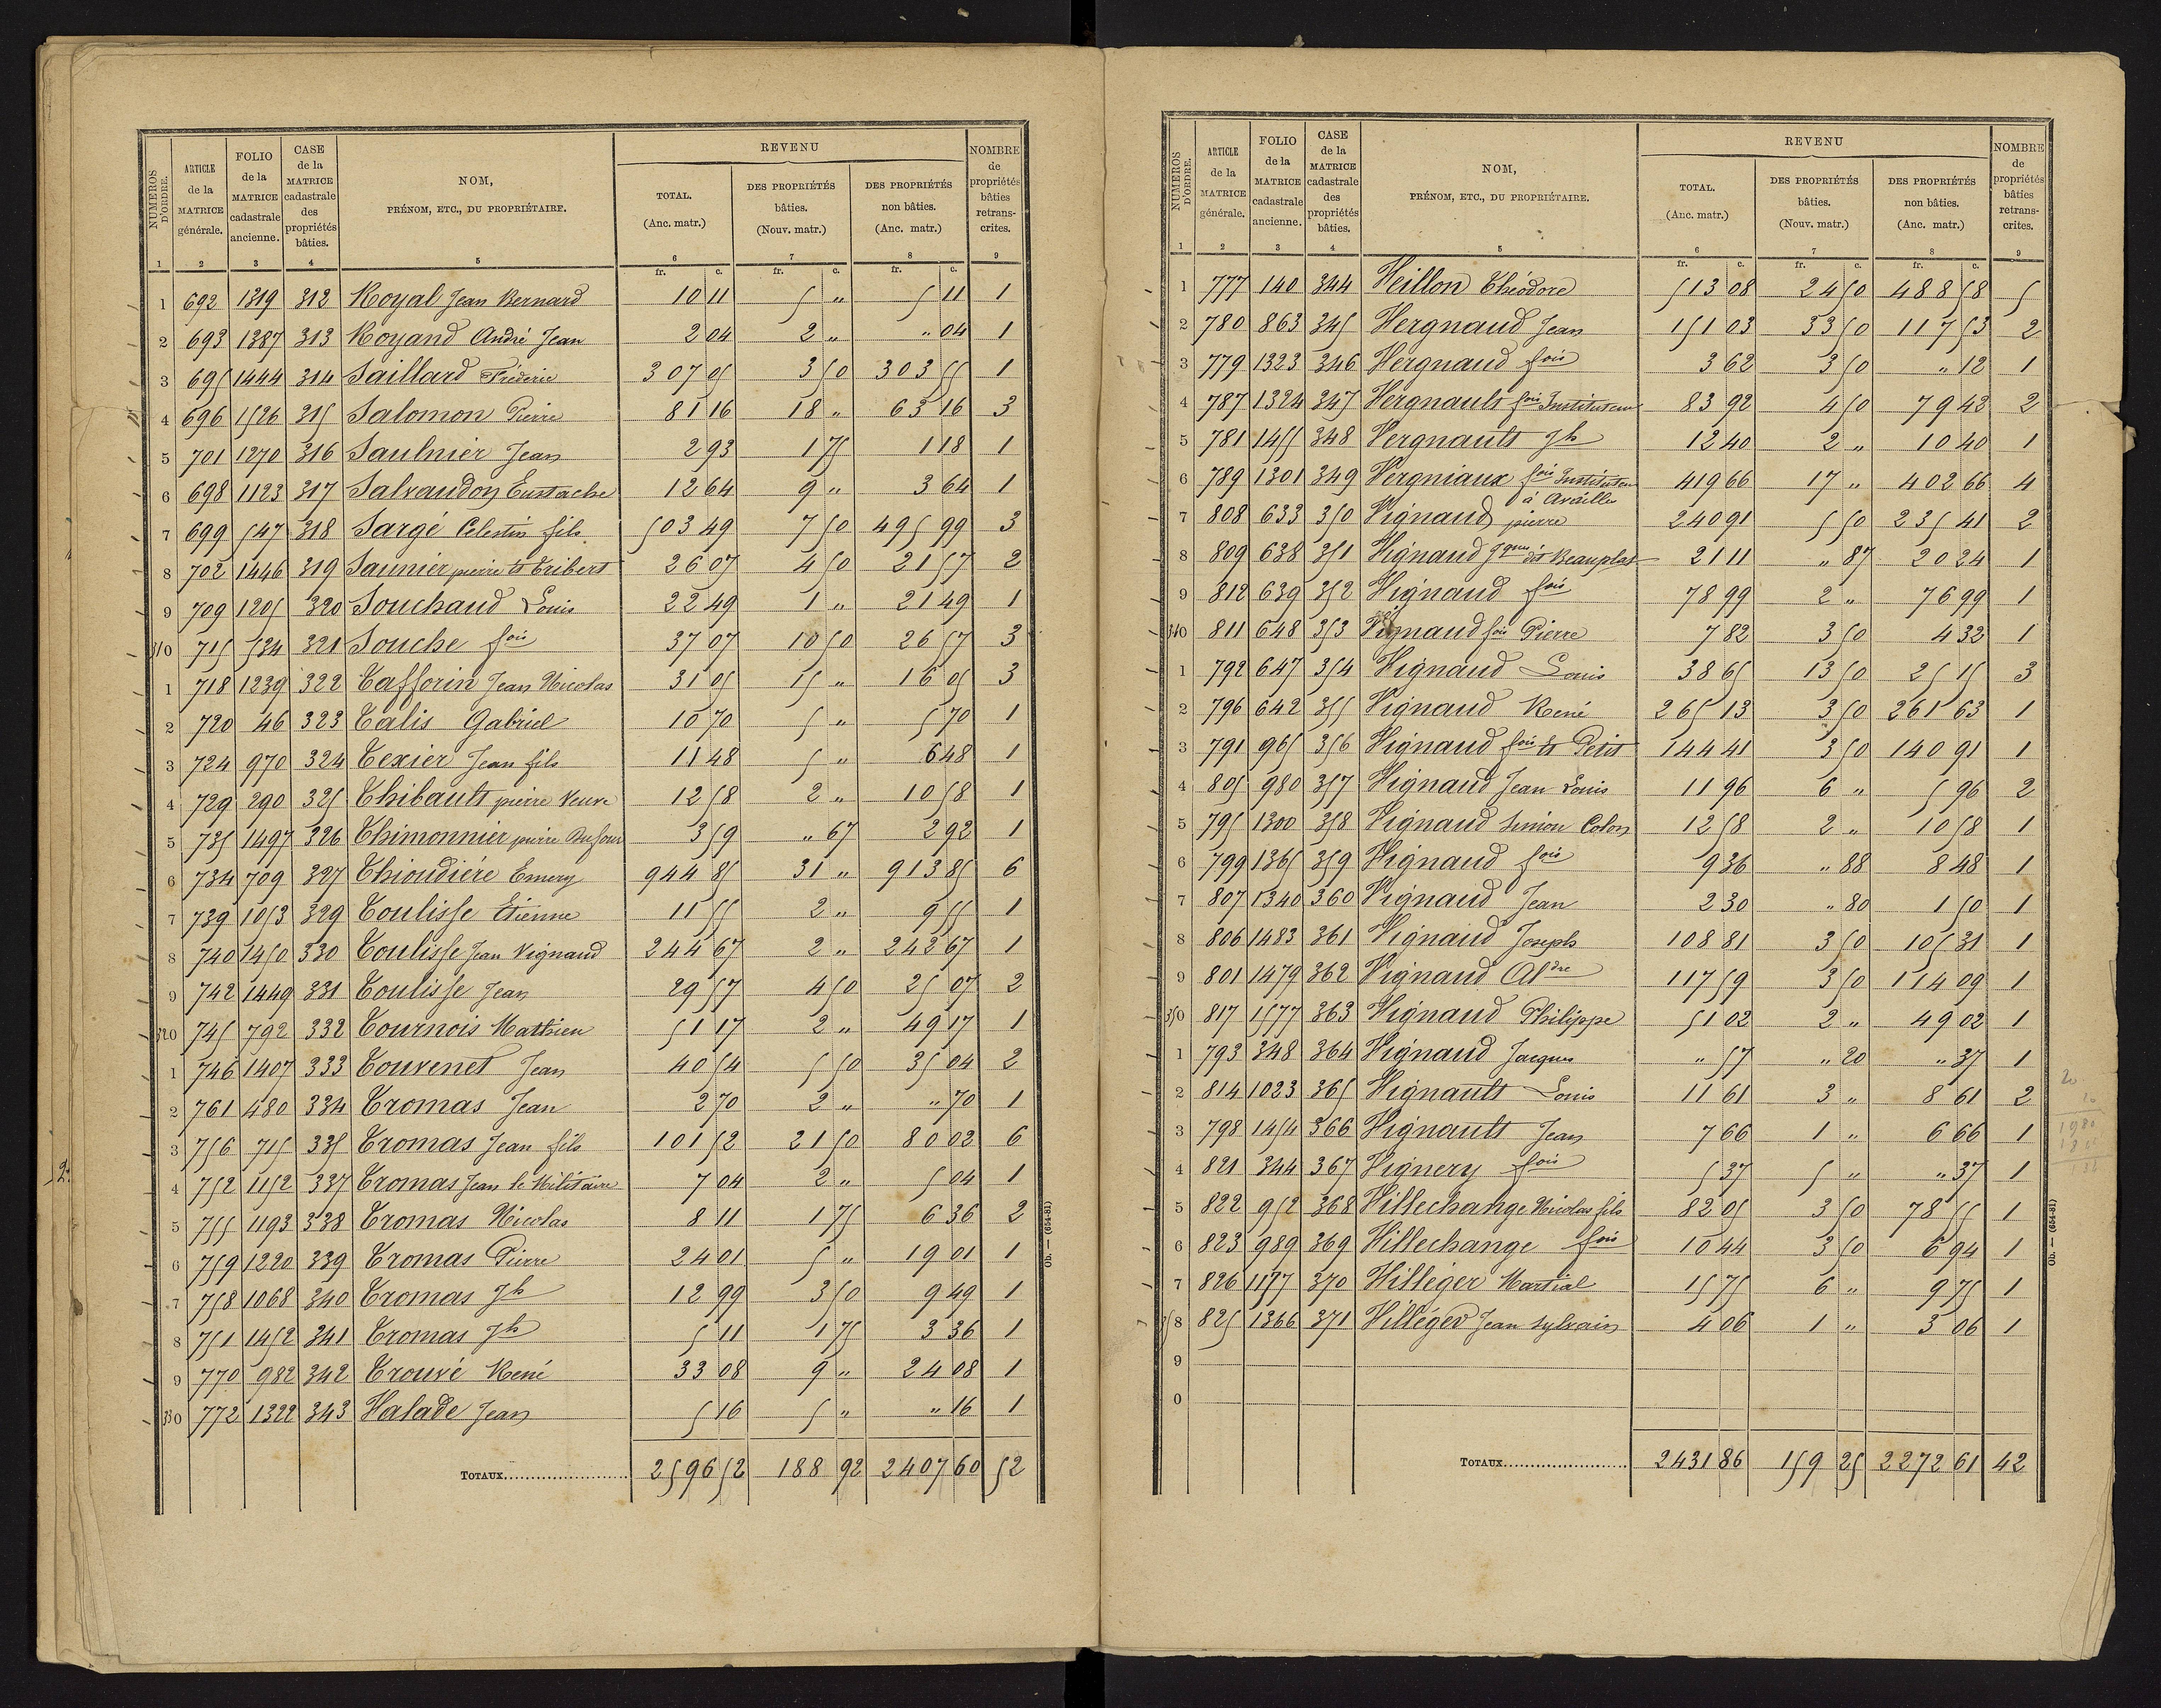 NUMEROS D'ORDRE. | ARTICLE de la MATRICE générale. | FOLIO de la MATRICE cadastrale ancienne. | CASE de la MATRICE cadastrale des propriétés bâties. | NOM, PRÉNOM, ETC., DU PROPRIÉTAIRE. | REVENU TOTAL. (Anc. matr.) | DES PROPRIÉTÉS bâties. (Nouv. matr.) | DES PROPRIÉTÉS non bâties. (Anc. matr.) | NOMBRE de propriétés bâties retrans- crites.
1 2 3 4 5 6 7 8 9
fr. c. fr. c. fr. c.
1 692 1319 312 Royal Jean Bernard 10 11 5 " 5 11 1
2 693 1387 313 Royand André Jean 2 04 2 " " 04 1
3 695 1444 314 Saillard Fréderic 307 05 3 50 303 55 1
4 696 1526 315 Salomon Pierre 81 16 18 " 63 16 3
5 701 1270 316 Saulnier Jean 2 93 1 75 1 18 1
6 698 1123 317 Salvaudon Eustache 12 64 9 " 3 64 1
7 699 547 318 Sargé Celestin fils 503 49 7 50 495 99 3
8 702 1446 319 Saunier pierre et Tribert 26 07 4 50 21 57 2
9 709 1205 320 Souchaud Louis 22 49 1 " 21 49 1
310 715 534 321 Souche fois 37 07 10 50 26 57 3
1 718 1239 322 Tafforin Jean Nicolas 31 05 15 " 16 05 3
2 720 46 323 Talis Gabriel 10 70 5 " 5 70 1
3 724 970 324 Texier Jean fils 11 48 5 " 6 48 1
4 729 290 325 Thibault pierre Veuve 12 58 2 " 10 58 1
5 735 1497 326 Thimonnier pierre Dufour 3 59 " 67 2 92 1
6 734 709 327 Thioudiére Emery 944 85 31 " 913 85 6
7 739 1053 329 Toulisse Etienne 11 55 2 " 9 55 1
8 740 1450 330 Toulisse Jean Vignaud 244 67 2 " 242 67 1
9 742 1449 331 Toulisse Jean 29 57 4 50 25 07 2
320 745 792 332 Tournois Mathieu 51 17 2 " 49 17 1
1 746 1407 333 Touvenet Jean 40 54 5 50 35 04 2
2 761 480 334 Tromas Jean 2 70 2 " " 70 1
3 756 715 335 Tromas Jean fils 101 52 21 50 80 02 6
4 752 1152 337 Tromas Jean le Militaire 7 04 2 " 5 04 1
5 755 1193 338 Tromas Nicolas 8 11 1 75 6 36 2
6 759 1220 339 Tromas Pierre 24 01 5 " 19 01 1
7 758 1068 340 Tromas Jh 12 99 3 50 9 49 1
8 751 1452 341 Tromas Jh 5 11 1 75 3 36 1
9 770 982 342 Trouvé René 33 08 9 " 24 08 1
330 772 1322 343 Valade Jean 5 16 5 " " 16 1
TOTAUX 2596 52 188 92 2407 60 52
Ob. — (654-81)
NUMEROS D'ORDRE. | ARTICLE de la MATRICE générale. | FOLIO de la MATRICE cadastrale ancienne. | CASE de la MATRICE cadastrale des propriétés bâties. | NOM, PRÉNOM, ETC., DU PROPRIÉTAIRE. | REVENU TOTAL. (Anc. matr.) | DES PROPRIÉTÉS bâties. (Nouv. matr.) | DES PROPRIÉTÉS non bâties. (Anc. matr.) | NOMBRE de propriétés bâties retrans- crites.
1 2 3 4 5 6 7 8 9
fr. c. fr. c. fr. c.
1 777 140 344 Veillon Théodore 513 08 24 50 488 58 5
2 780 863 345 Vergnaud Jean 151 03 33 50 117 53 2
3 779 1323 346 Vergnaud fois 3 62 3 50 " 12 1
4 787 1324 347 Vergnault fois Instituteur 83 92 4 50 79 42 2
5 781 1455 348 Vergnault Jh 12 40 2 " 10 40 1
6 789 1301 349 Vergniaux fois Instituteur à Availle 419 66 17 " 402 66 4
7 808 633 350 Vignaud pierre 240 91 5 50 235 41 2
8 809 638 351 Vignaud Jques dit Beauplat 21 11 " 87 20 24 1
9 812 639 352 Vignaud fois 78 99 2 " 76 99 1
340 811 648 353 Vignaud fois Pierre 7 82 3 50 4 32 1
1 792 647 354 Vignaud Louis 38 65 13 50 25 15 3
2 796 642 355 Vignaud René 265 13 3 50 261 63 1
3 791 965 356 Vignaud fois et Petit 144 41 3 50 140 91 1
4 805 980 357 Vignaud Jean Louis 11 96 6 " 5 96 2
5 795 1300 358 Vignaud Simion Colon 12 58 2 " 10 58 1
6 799 1365 359 Vignaud fois 9 36 " 88 8 48 1
7 807 1340 360 Vignaud Jean 2 30 " 80 1 50 1
8 806 1483 361 Vignaud Joseph 108 81 3 50 105 31 1
9 801 1479 362 Vignaud Aldre 117 59 3 50 114 09 1
350 817 1577 363 Vignaud Philippe 51 02 2 " 49 02 1
1 793 348 364 Vignaud Jacques " 57 " 20 " 37 1
2 814 1023 365 Vignault Louis 11 61 3 " 8 61 2
3 798 1454 366 Vignault Jean 7 66 1 " 6 66 1
4 821 344 367 Vignery fois 5 37 5 " " 37 1
5 822 952 368 Villechange Nicolas fils 82 05 3 50 78 55 1
6 823 989 369 Villechange fois 10 44 3 50 6 94 1
7 826 1177 370 Villéger Martial 15 75 6 " 9 75 1
358 825 1366 371 Villéger Jean Sylvain 4 06 1 " 3 06 1
9
0
TOTAUX 2431 86 159 25 2272 61 42
Ob. — (654-81)